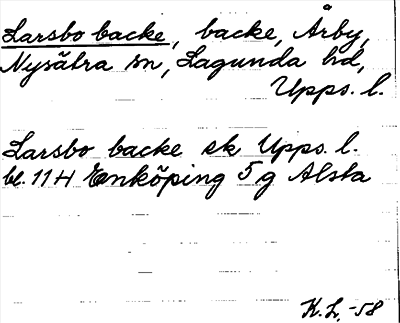 Larsbo backe, backe, Årby,
Nysätra sn, Lagunda hd,
Upps. l.
Larsbo backe ek Upps. l.
bl. 11H Enköping 5g Alsta
K.L. -58